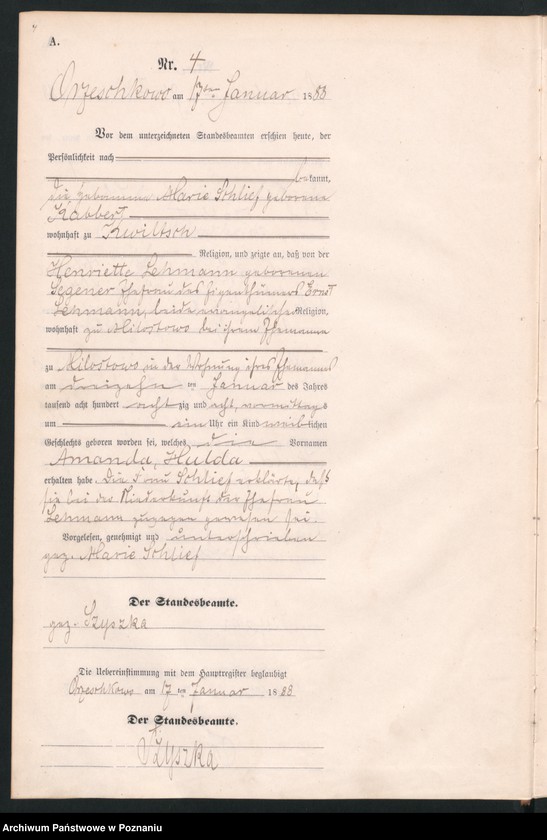 A.
Nr. 4
Orzeschkowo am 17ten Januar 1888
Vor dem unterzeichneten Standesbeamten erschien heute, der
Persönlichkeit nach
bekannt,
die Hebamme Marie Schlief geborene
Kabbert
wohnhaft zu Kwiltsch
Religion, und zeigte an, daß von der
Henriette Lehmann geborenen
Segener Ehefrau des Eigenthümers Ernst
Lehmann, beide evangelische Religion,
wohnhaft zu Milostowo bei ihrem Ehemanne
zu Milostowo in der Wohnung ihres Ehemannes
am dreizehn ten Januar des Jahres
tausend acht hundert acht zig und acht, vormittags
um ein Uhr ein Kind weiblichen
Geschlechts geboren worden sei, welches die Vornamen
Amanda, Hulda
erhalten habe. Die Frau Schlief erklärte, daß
sie bei der Niederkunft der Ehefrau
Lehmann zugegen gewesen sei.
Vorgelesen, genehmigt und unterschrieben
gez. Marie Schlief
Der Standesbeamte.
gez. Szyszka
Die Uebereinstimmung mit dem Hauptregister beglaubigt
Orzeschkowo am 17 ten Januar 1888
Der Standesbeamte.
Szyszka
Archiwum Państwowe w Poznaniu